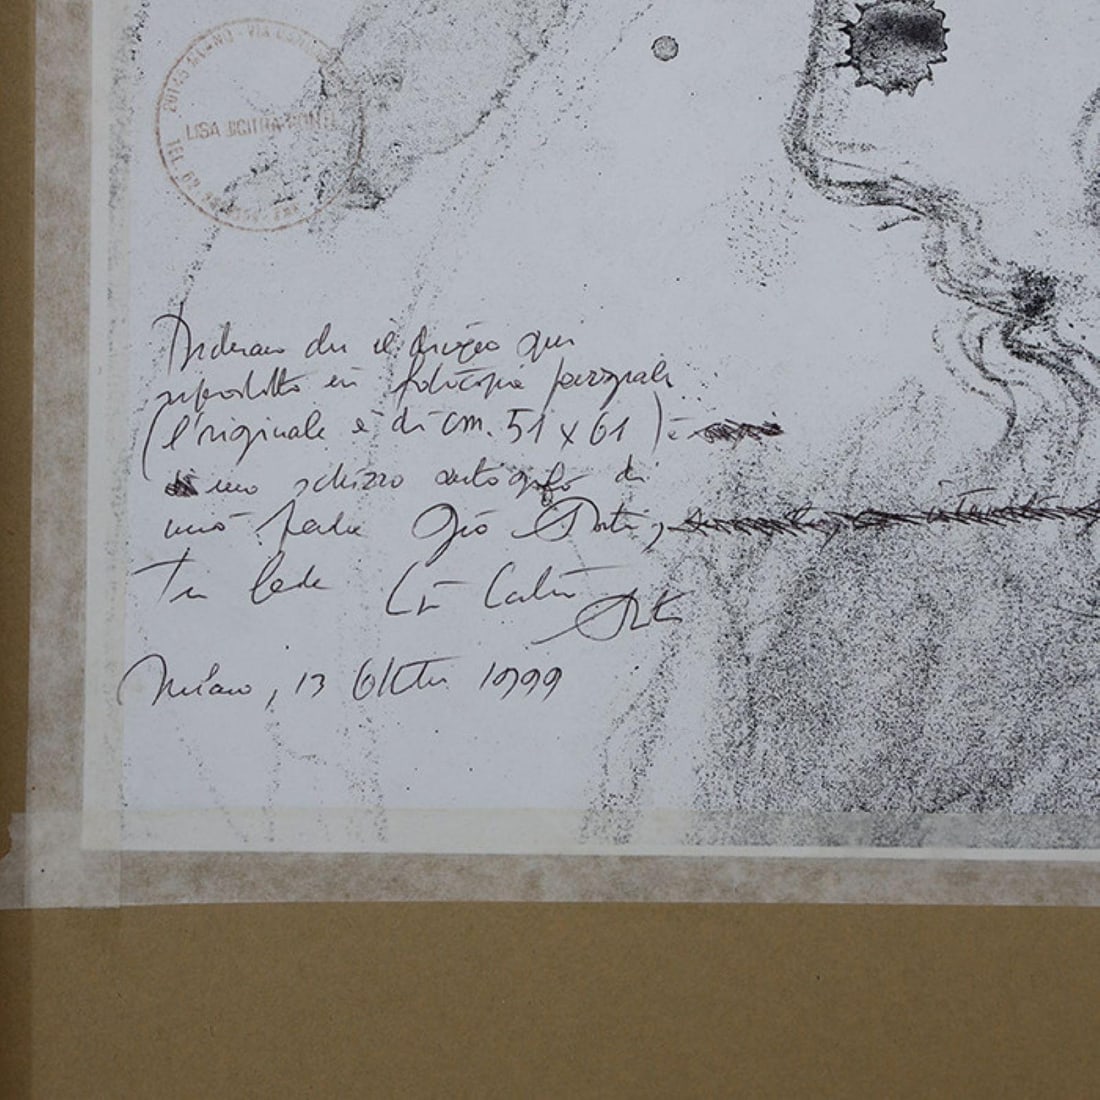 LISA LICITRA PONTI
Dichiaro che il disegno qui
riprodotto in fotocopia parziale
(l'originale è di cm. 51 x 61) è
uno schizzo autografo di
mio padre Giò Ponti,
In fede
Ponti
Milano, 13 Ottobre 1999